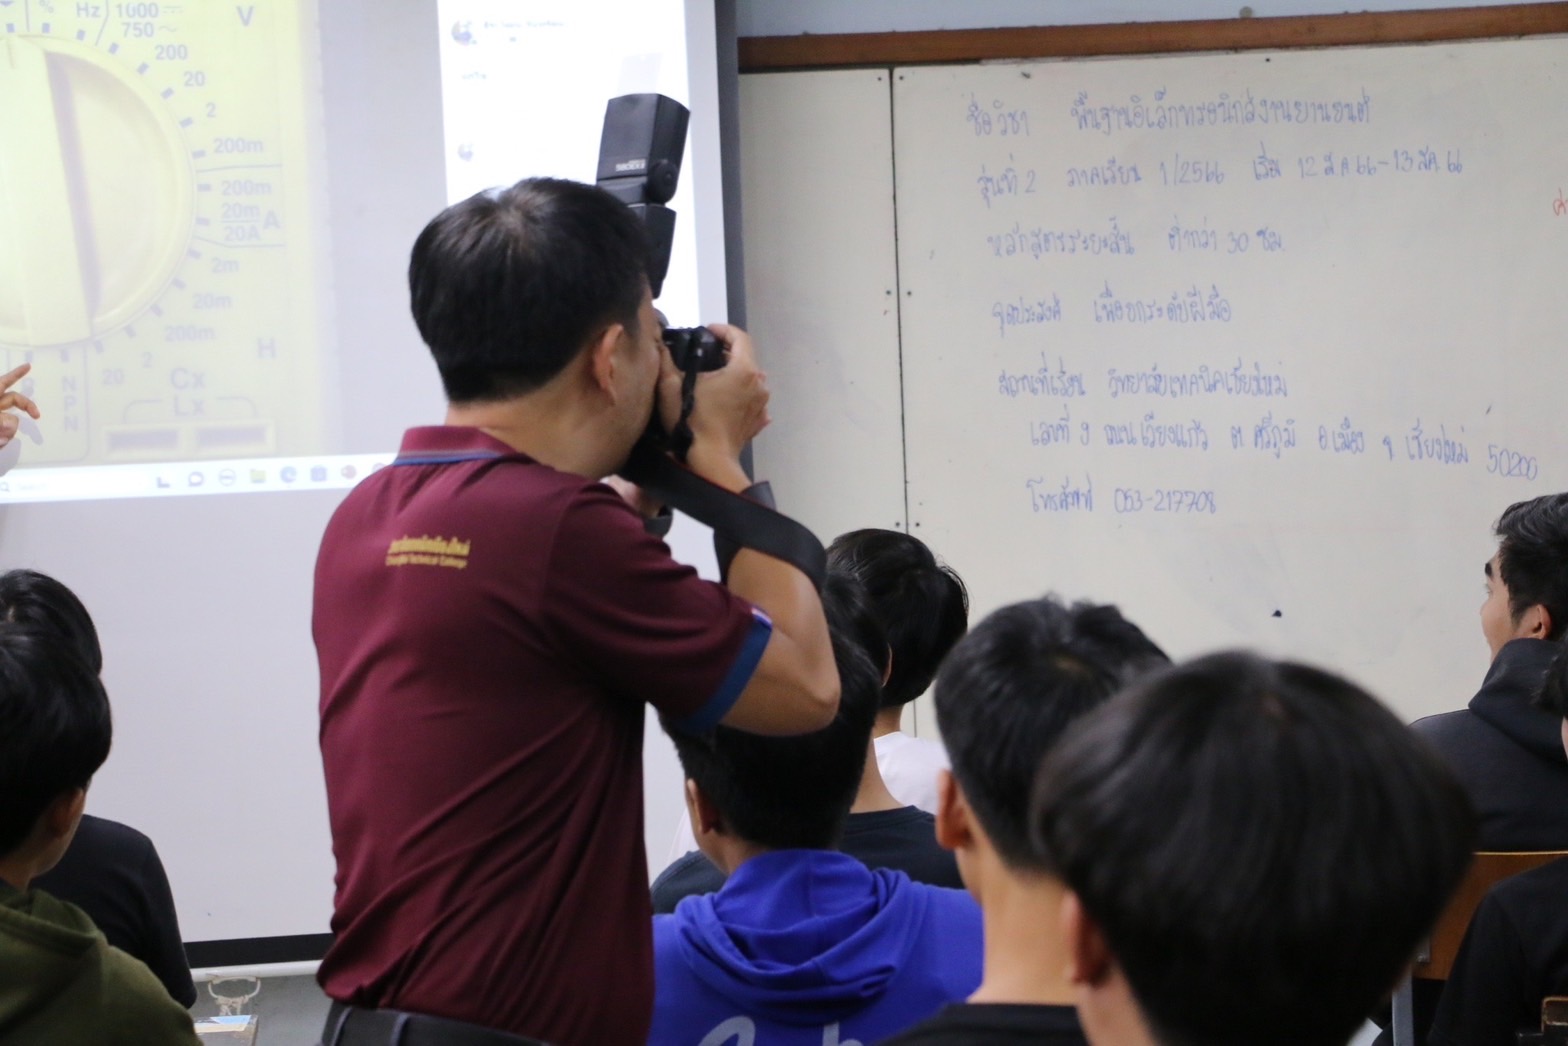 Hz
1000
750
V
200
20
2
200m
200m
20m
20A
A
2m
20m
200m
H
2
20
Cx
Lx
ชื่อวิชา พื้นฐานอิเล็กทรอนิกส์งานยานยนต์
รุ่นที่ 2 ภาคเรียน 1/2566 เริ่ม 12 ส.ค 66-13 ส.ค 66
หลักสูตรระยะสั้น ต่ำกว่า 30 ชม
จุดประสงค์ เพื่อยกระดับฝีมือ
สถานที่เรียน วิทยาลัยเทคนิคเชียงใหม่
เลขที่ 9 ถนนเวียงแก้ว ต ศรีภูมิ อ เมือง จ เชียงใหม่ 50200
โทรศัพท์ 053-217708